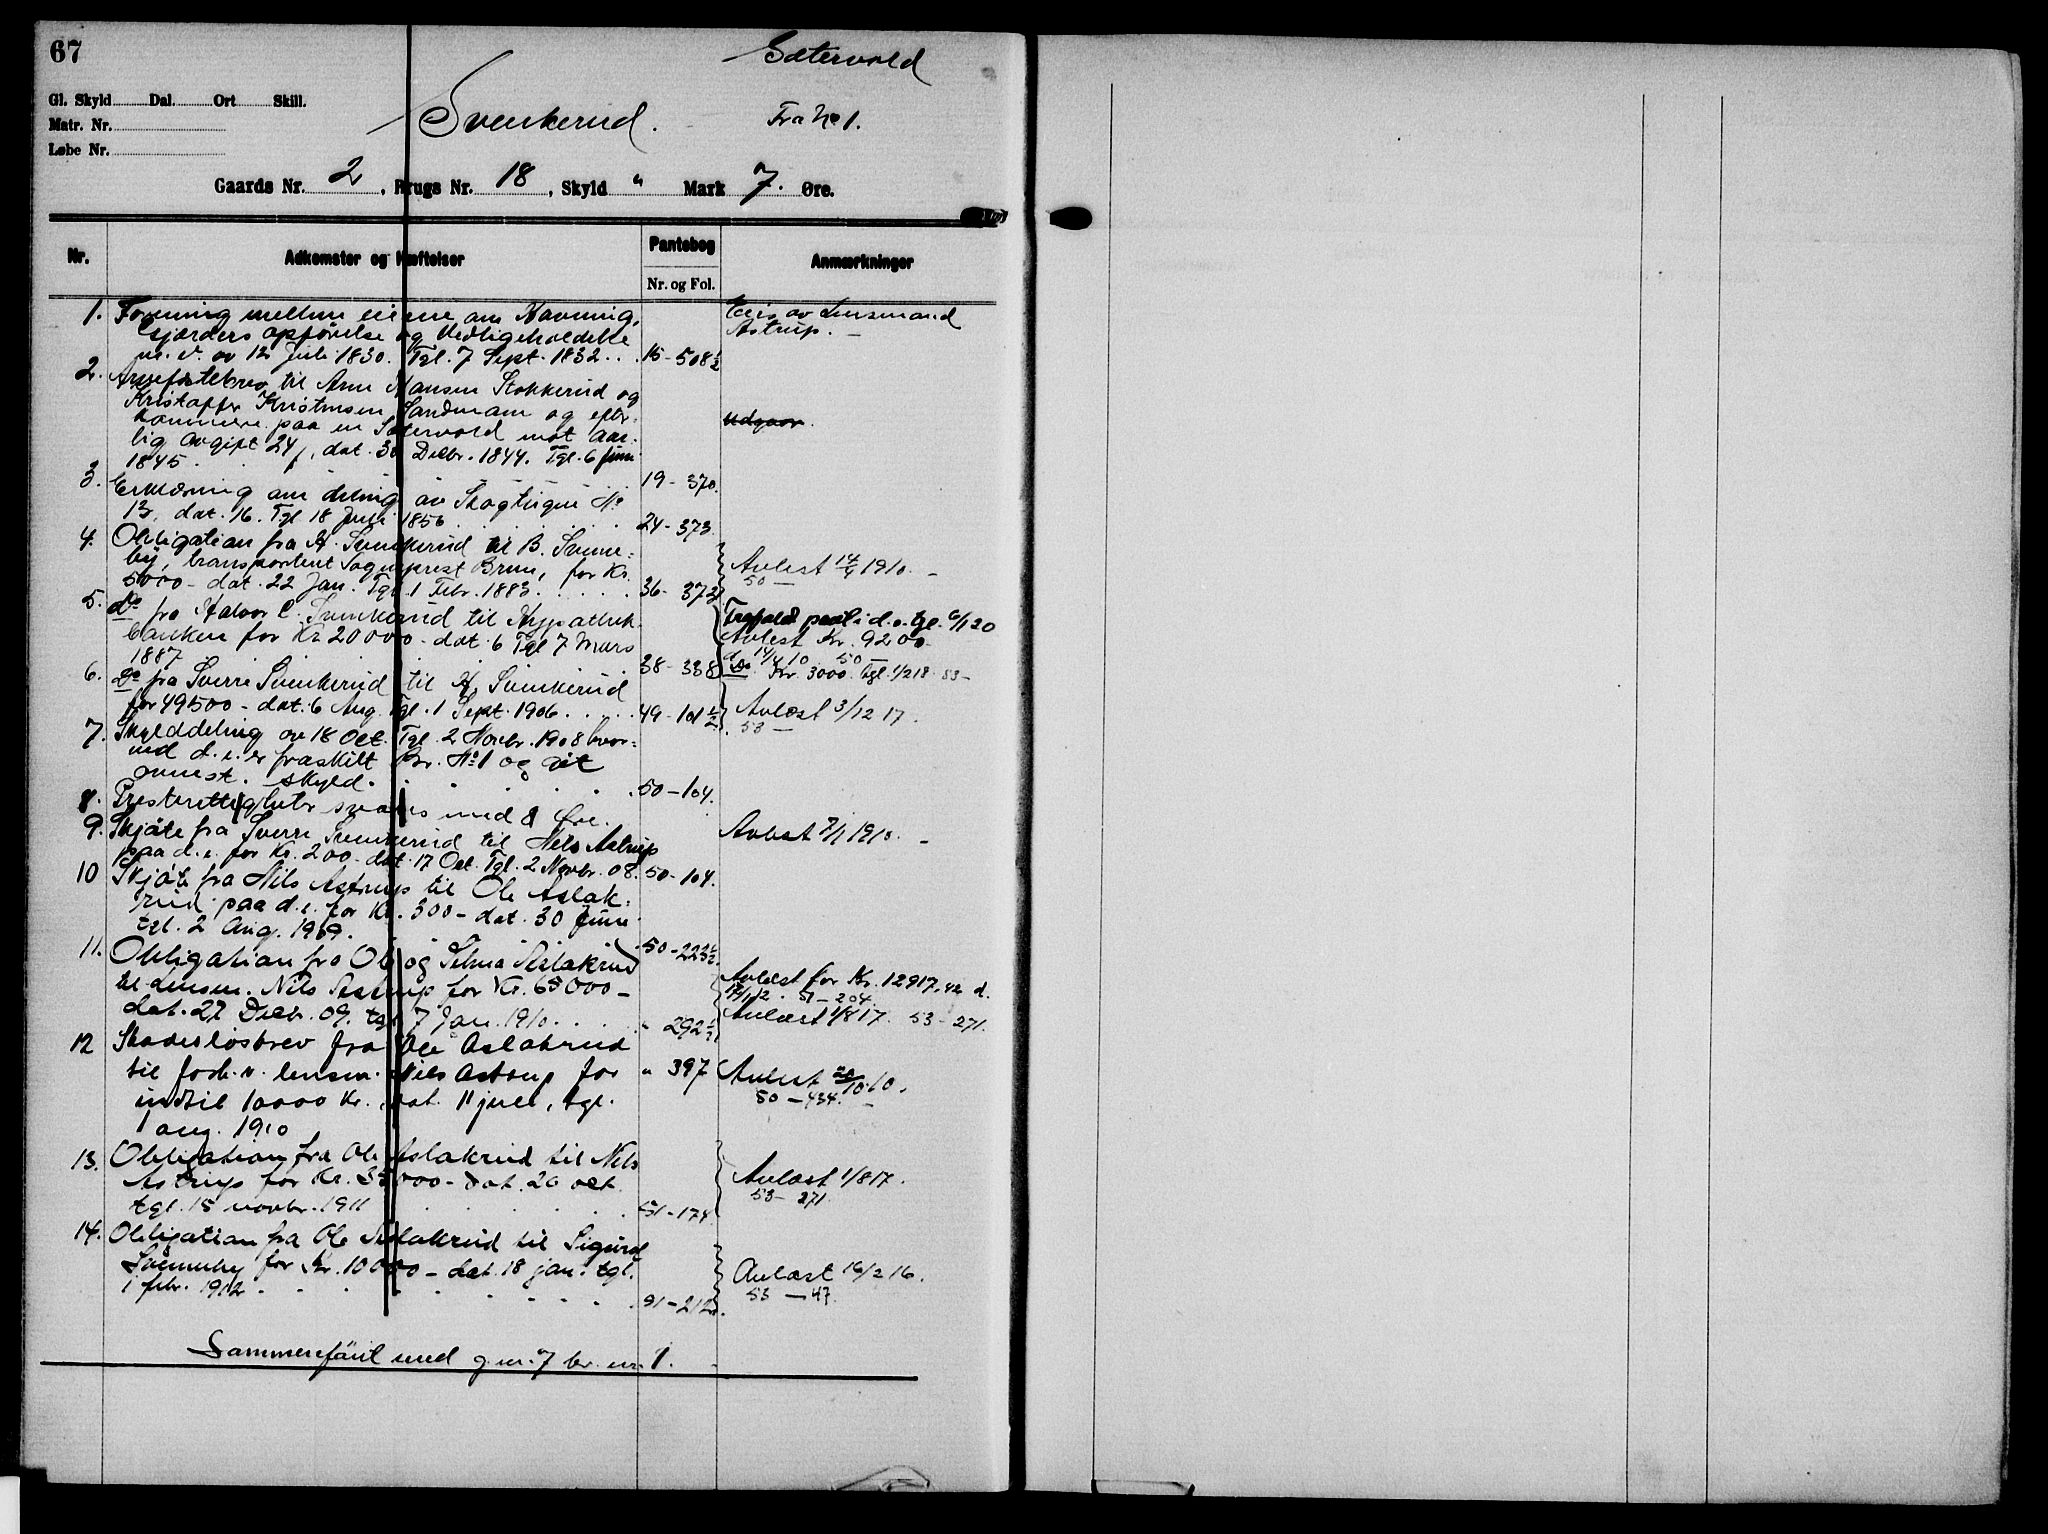 67
Sætervold
Gl. Skyld Dal. Ort Skill.
Svenkerud. Fra No 1.
Matr. Nr.
Løbe Nr.
Gaards Nr. 2, Brugs Nr. 18, Skyld " Mark 7. Øre.
Nr. Adkomster og Hæftelser Pantebog Nr. og Fol. Anmærkninger
1. Forening mellem eierne om Havning,
Gjærders opførelse og Vedligeholdelse
m. v. av 12 Juli 1830. Tgl. 7 Sept. 1832 . . 15 - 508½
Eies av Lensmand
Astrup. —
2. Arvefæstebrev til Arne Hansen Stokkerud og
Kristoffer Kristensen Sandmoen og efter-
kommere paa en Sætervold mot aar-
lig avgift 24 , dat. 30 Decbr. 1844. Tgl. 6 Juni
1845 . . . 19 - 370.
Udgaar.
3. Erklæring om deling av Skogteigen No
13, dat. 16. Tgl 18 Juli 1856 . . . 24 - 373.
4. Obligation fra H. Svenkerud til B. Svenne=
by, transporteret Sogneprest Brun, for Kr.
5000 - dat. 22 Jan. Tgl 1 Febr. 1883 . . . . 36 - 373
Avlest 14/4 1910. —
50 —
5. Do fra Halvor C. Svenkerud til Hypothek-
banken for Kr 20000 - dat. 6 Tgl 7 Mars
1887 38 - 338
Frafaldt pant i d. e. tgl. 6/1 20
Avlest Kr. 9200-
d. 14/4 10 50 —
Do Kr. 3000. Tgl. 1/2 18 53 -
6. Do fra Sverre Svenkerud til H. Svenkerud
for 49500 - dat. 6 Aug. Tgl. 1 Sept. 1906 . . . . 49 - 101½
Avlæst 3/12 17.
53 —
7. Skylddeling av 18 Oct. Tgl. 2 Novbr. 1908 hvor-
ved d. e. er fraskilt Br. No 1 og git
anmst. skyld. . . . . 50 - 104.
8. Presterettigheter svares med 8 Øre.
9. Skjøte fra Sverre Svenkerud til Nils Astrup
paa d. e. for Kr. 200 - dat. 17 Oct. Tgl. 2 Novbr. 08. 50 - 104.
Avlest 7/1 1910. —
10 Skjøte fra Nils Astrup til Ole Aslak-
rud paa d. e. for Kr. 300 - dat. 30 Juni
tgl. 2 Aug. 1909. 50 - 223½
11. Obligation fra Ole og Selma Aslakrud
til lensm. Nils Astrup for Kr. 65000 -
dat. 27 Decbr. 09. tgl. 7 Jan. 1910 . . . " 292½
Avlæst for Kr. 12917,42 d.
51 - 204.
Avlæst 1/8 17. 53 - 271.
12 Skadesløsbrev fra Ole Aslakrud
til forh. v. lensm. Nils Astrup for " 397
indtil 10000 Kr. dat. 11 juli, tgl.
1 aug. 1910
Avlest 20/10 10.
50 - 434. —
13. Obligation fra Ole Aslakrud til Nils
Astrup for Kr. 35000 - dat. 20 oct.
tgl. 15 novbr. 1911 . . . . 51 - 174.
Avlæst 1/8 17.
53 - 271.
14. Obligation fra Ole Aslakrud til Sigurd
Svenneby for Kr. 10000 - dat. 18 jan. tgl.
1 febr. 1912 . . . . 51 - 212.
Avlæst 16/2 16.
53 - 47.
Sammenføiet med g. nr. 7 br. nr. 1.